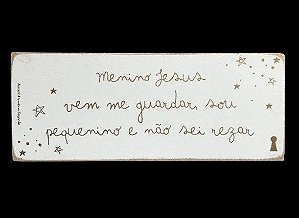 Menino Jesus
vem me guardar, sou
pequenino e não sei rezar